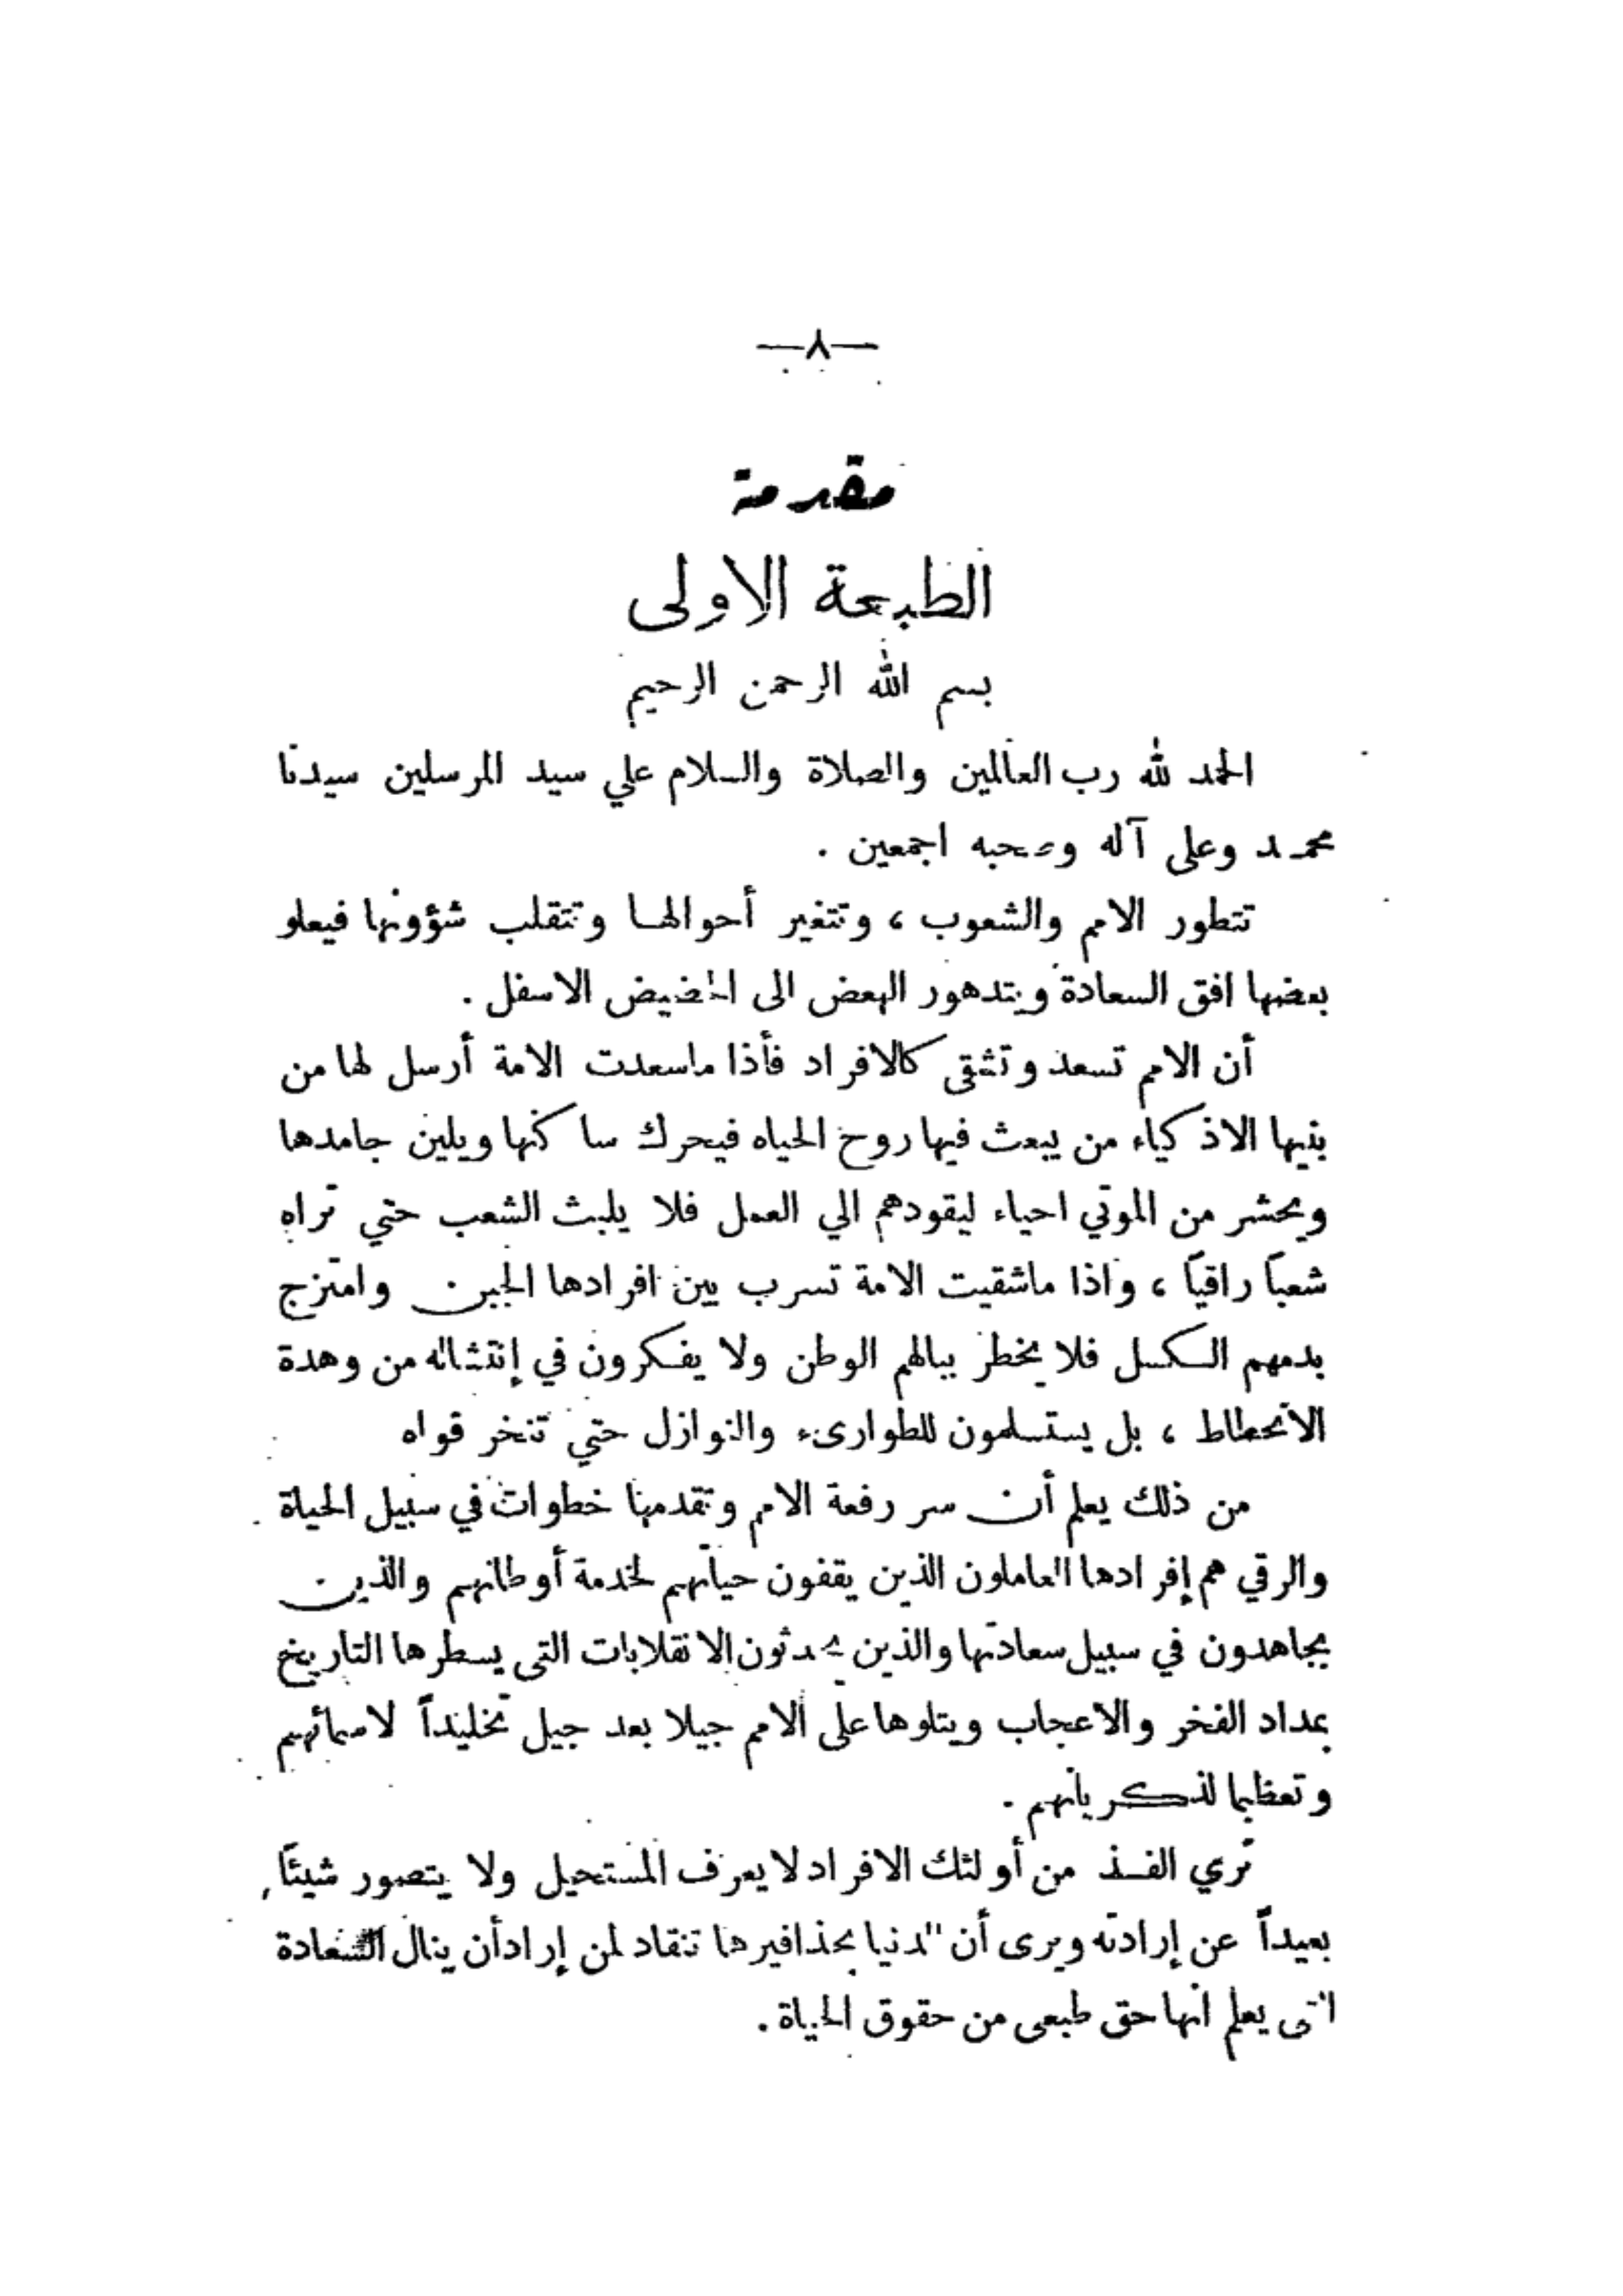 —٨—
مقدمة
الطبعة الاولى
بسم الله الرحمن الرحيم
الحمد لله رب العالمين والصلاة والسلام علي سيد المرسلين سيدنا
محمد وعلى آله وصحبه اجمعين .
تتطور الامم والشعوب ، وتتغير أحوالها وتتقلب شؤونها فيعلو
بعضها افق السعادة ويتدهور البعض الى الحضيض الاسفل .
أن الامم تسعد وتشقى كالافراد فأذا ماسعدت الامة أرسل لها من
بنيها الاذكياء من يبعث فيها روح الحياه فيحرك ساكنها ويلين جامدها
ويحشر من الموتي احياء ليقودهم الي العمل فلا يلبث الشعب حتي تراه
شعباً راقياً ، واذا ماشقيت الامة تسرب بين افرادها الجبن وامتزج
بدمهم الكسل فلا يخطر ببالهم الوطن ولا يفكرون في إنتشاله من وهدة
الانحطاط ، بل يستسلمون للطوارىء والنوازل حتي تنخر قواه
من ذلك يعلم أن سر رفعة الامم وتقدمها خطوات في سبيل الحياة
والرقي هم إفرادها العاملون الذين يقفون حياتهم لخدمة أوطانهم والذين
يجاهدون في سبيل سعادتها والذين يحدثون الانقلابات التى يسطرها التاريخ
بمداد الفخر والاعجاب ويتلوها على الامم جيلا بعد جيل تخليداً لاسمائهم
وتعظيما لذكرياتهم .
تري الفذ من أولئك الافراد لايعرف المستحيل ولا يتصور شيئاً
بعيداً عن إرادته ويرى أن الدنيا بحذافيرها تنقاد لمن إرادأن ينال السعادة
التى يعلم انها حق طبعى من حقوق الحياة .